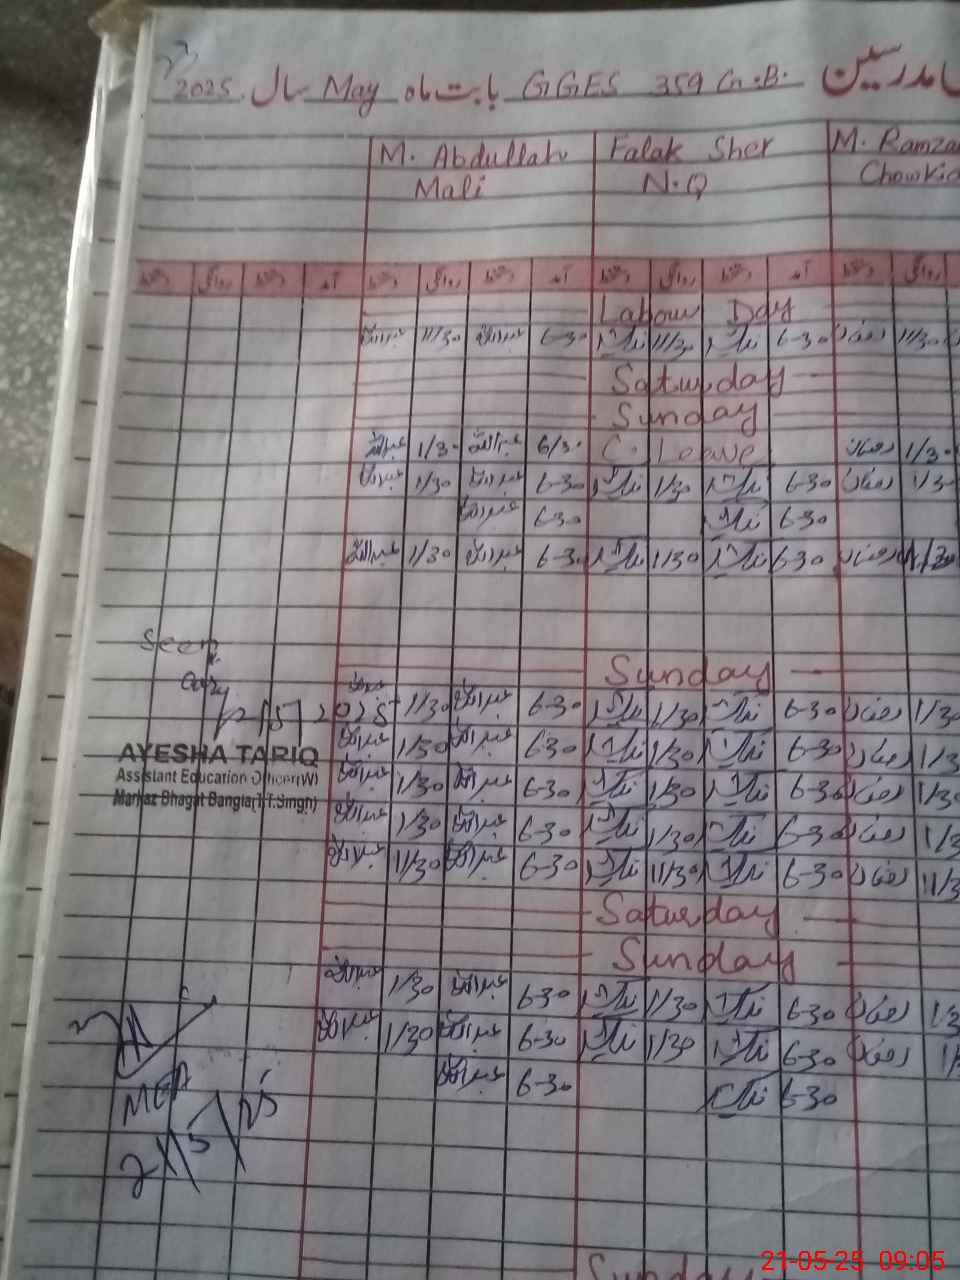 مدرسین GGES 359 G.B. بابت ماہ May سال 2025
M. Abdullah Falak Sher M. Ramzan
Mali N.Q
آمد دستخط روانگی دستخط آمد دستخط روانگی دستخط آمد دستخط روانگی دستخط
Labour Day
عبداللہ 11/30 عبداللہ 6-30 11/30 6-30 رمضان 11/30
Saturday
Sunday
عبداللہ 1/30 عبداللہ 6/30 C. Leave رمضان 1/30
عبداللہ 1/30 عبداللہ 6-30 1/30 6-30 رمضان 1/30
عبداللہ 6-30 6-30
عبداللہ 1/30 عبداللہ 6-30 1/30 6-30 رمضان
Seen
Sunday
2025 1/30 عبداللہ 6-30 1/30 6-30 رمضان 1/30
عبداللہ 1/30 عبداللہ 6-30 1/30 6-30 رمضان 1/3
AYESHA TARIQ
Assistant Education Officer(W)
Markaz Bhagat Bangla(T.T.Singh)
عبداللہ 1/30 عبداللہ 6-30 1/30 6-30 رمضان 1/30
عبداللہ 1/30 عبداللہ 6-30 1/30 6-30 رمضان 1/3
عبداللہ 11/30 عبداللہ 6-30 11/30 6-30 رمضان 11/3
Saturday
Sunday
عبداللہ 1/30 عبداللہ 6-30 1/30 6-30 رمضان 1/3
عبداللہ 1/30 عبداللہ 6-30 1/30 6-30 رمضان
عبداللہ 6-30 6-30
MEA
21/5/25
Sunday
21-05-25 09:05